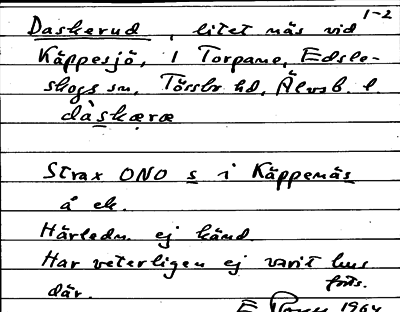 1-2
Daskerud, litet näs vid
Käppesjö, i Torpane, Edsle-
skogs sn, Tössbo hd, Älvsb. l.
dàskæræ
Strax ONO s i Käppenäs
å ek.
Härledn. ej känd.
Har veterligen ej varit hus
där.
forts.
E 1964